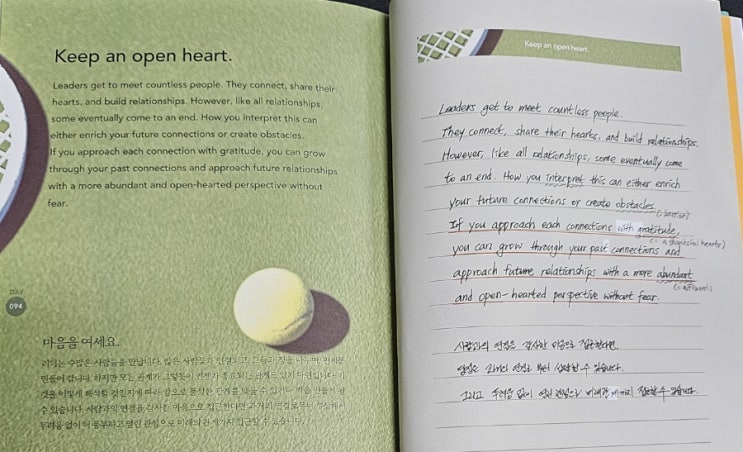 Keep an open heart.
Leaders get to meet countless people. They connect, share their
hearts, and build relationships. However, like all relationships,
some eventually come to an end. How you interpret this can
either enrich your future connections or create obstacles.
If you approach each connection with gratitude, you can grow
through your past connections and approach future relationships
with a more abundant and open-hearted perspective without
fear.
DAY
094
마음을 여세요.
리더는 수많은 사람들을 만납니다. 많은 사람들과 연결되고, 그들과 정을 나누며
하지만 모든 관계가 그렇듯이 언젠가 종료되는 관계도
것을 어떻게 해석할 것인지에 따라 앞으로 풍성한 관계를 맺을 수
수 있습니다. 사람과의 연결을 감사한 마음으로 접근한다면 과거의 연결로부터 성장해서
두려움 없이 더 풍부하고 열린 관점으로 미래의 관계까지 접근할 수 있습니다.
Keep an open heart.
Leaders get to meet countless people.
They connect, share their hearts, and build relationships.
However, like all relationships, some eventually come
to an end. How you interpret this can either enrich
your future connections or create obstacles.
If you approach each connections with gratitude,
you can grow through your past connections and
approach future relationships with a more abundant
and open-hearted perspective without fear.
사람과의 연결을 감사한 마음으로 접근한다면,
과거의 연결로 부터 성장할 수 있습니다.
그리고 두려움 없이 열린 관점으로 미래의 까지 접근할 수 있습니다.